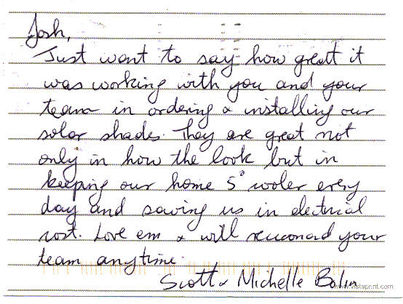 Josh,
Just want to say how great it
was working with you and your
team in ordering & installing our
solar shades. They are great not
only in how the look but in
keeping our home 5° cooler every
day and saving us in electrical
cost. Love em & will recconend your
team anytime.
Scott & Michelle Bolin